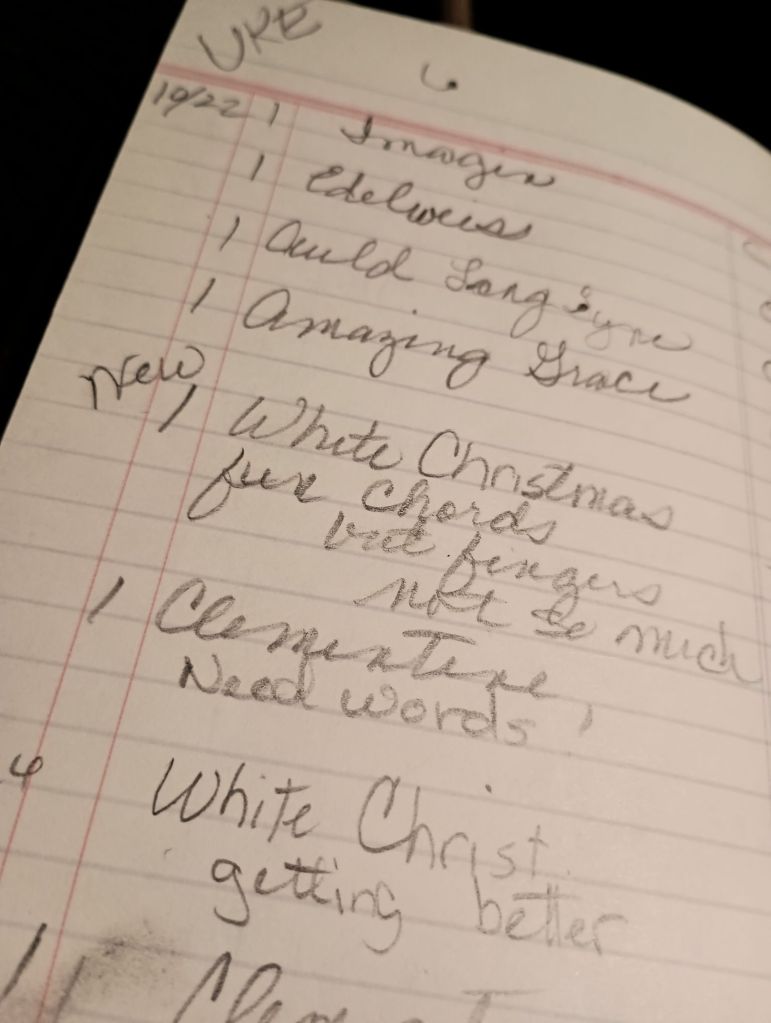 UKE
6
10/22 1 Imagin
1 Edelweis
1 Auld Lang Syne
1 Amazing Grace
New
1 White Christmas
fun chords
but fingers
not so much
1 Clementine,
Need words
White Christ.
getting better
1 Clement